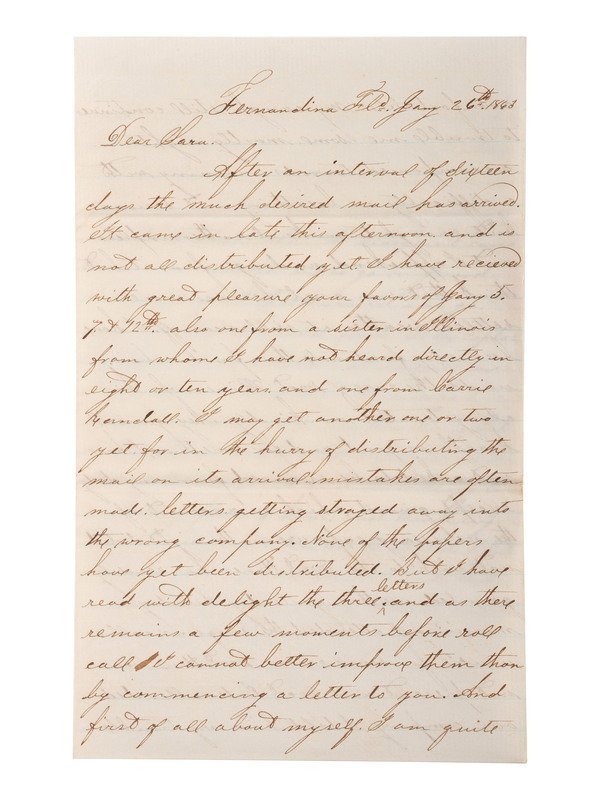 Fernandina Fld. Jany 26th. 1863
Dear Sara.
After an interval of sixteen
days the much desired mail has arrived.
It came in late this afternoon and is
not all distributed yet. I have recieved
with great pleasure your favors of Jany 5.
7. & 12th. also one from a sister in Illinois
from whom I have not heard directly in
eight or ten years. and one from Carrie
I may get another one or two
yet. for in the hurry of distributing the
mail on its arrival mistakes are often
made. letters getting strayed away into
the wrong company. None of the papers
have yet been distributed. But I have
read with delight the three letters. and as there
remains a few moments before roll
call I cannot better improve them than
by commencing a letter to you. And
first of all about myself. I am quite